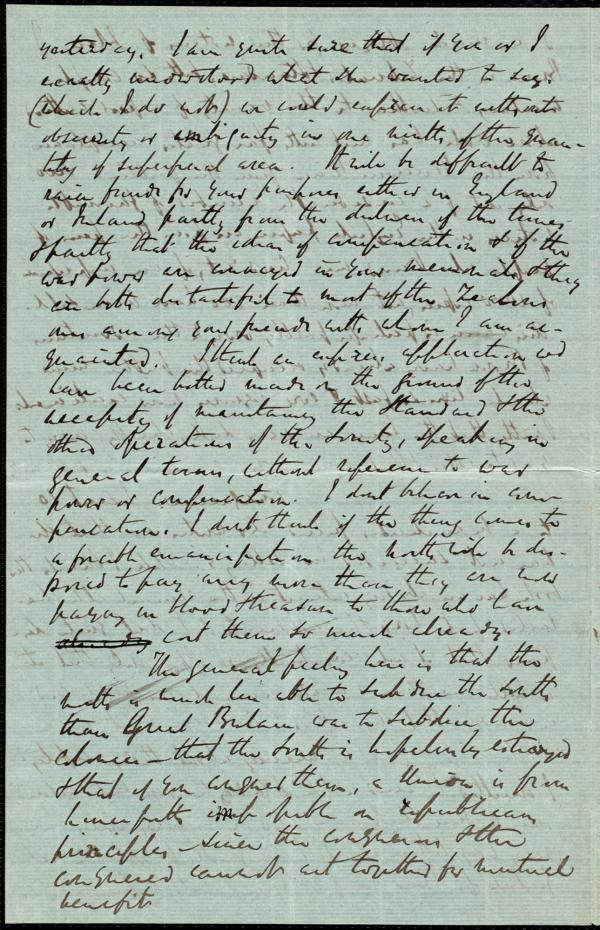 yesterday. I am quite sure that if you or I
exactly understood what she wanted to say,
(which I do not) we could express it without
obscurity or ambiguity in one ninth of the quan-
tity of superficial area. It will be difficult to
raise funds for your purposes either in England
or Ireland partly from the dulness of the times
& partly that the ideas of compensation & of the
war power are conveyed in your memorial & they
are both distasteful to most of the zealous
ones among your friends with whom I am ac-
quainted. I think an express application wd
have been better made on the ground of the
necessity of maintaining the Standard & the
other operations of the Society, speaking in
general terms, without reference to war
power or compensation. I dont believe in com-
pensation. I dont think if the thing comes to
a forcible emancipation the North will be dis-
posed to pay any more than they are now
paying in blood & treasure to those who have
already cost them so much already.
The general feeling here is that the
north is much less able to subdue the South
than Great Britain was to subdue the
Colonies – that the South is hopelessly estranged
& that if you conquer them, a Union is from
henceforth impossible on republican
principles – since the conquerors & the
conquered cannot act together for mutual
benefit